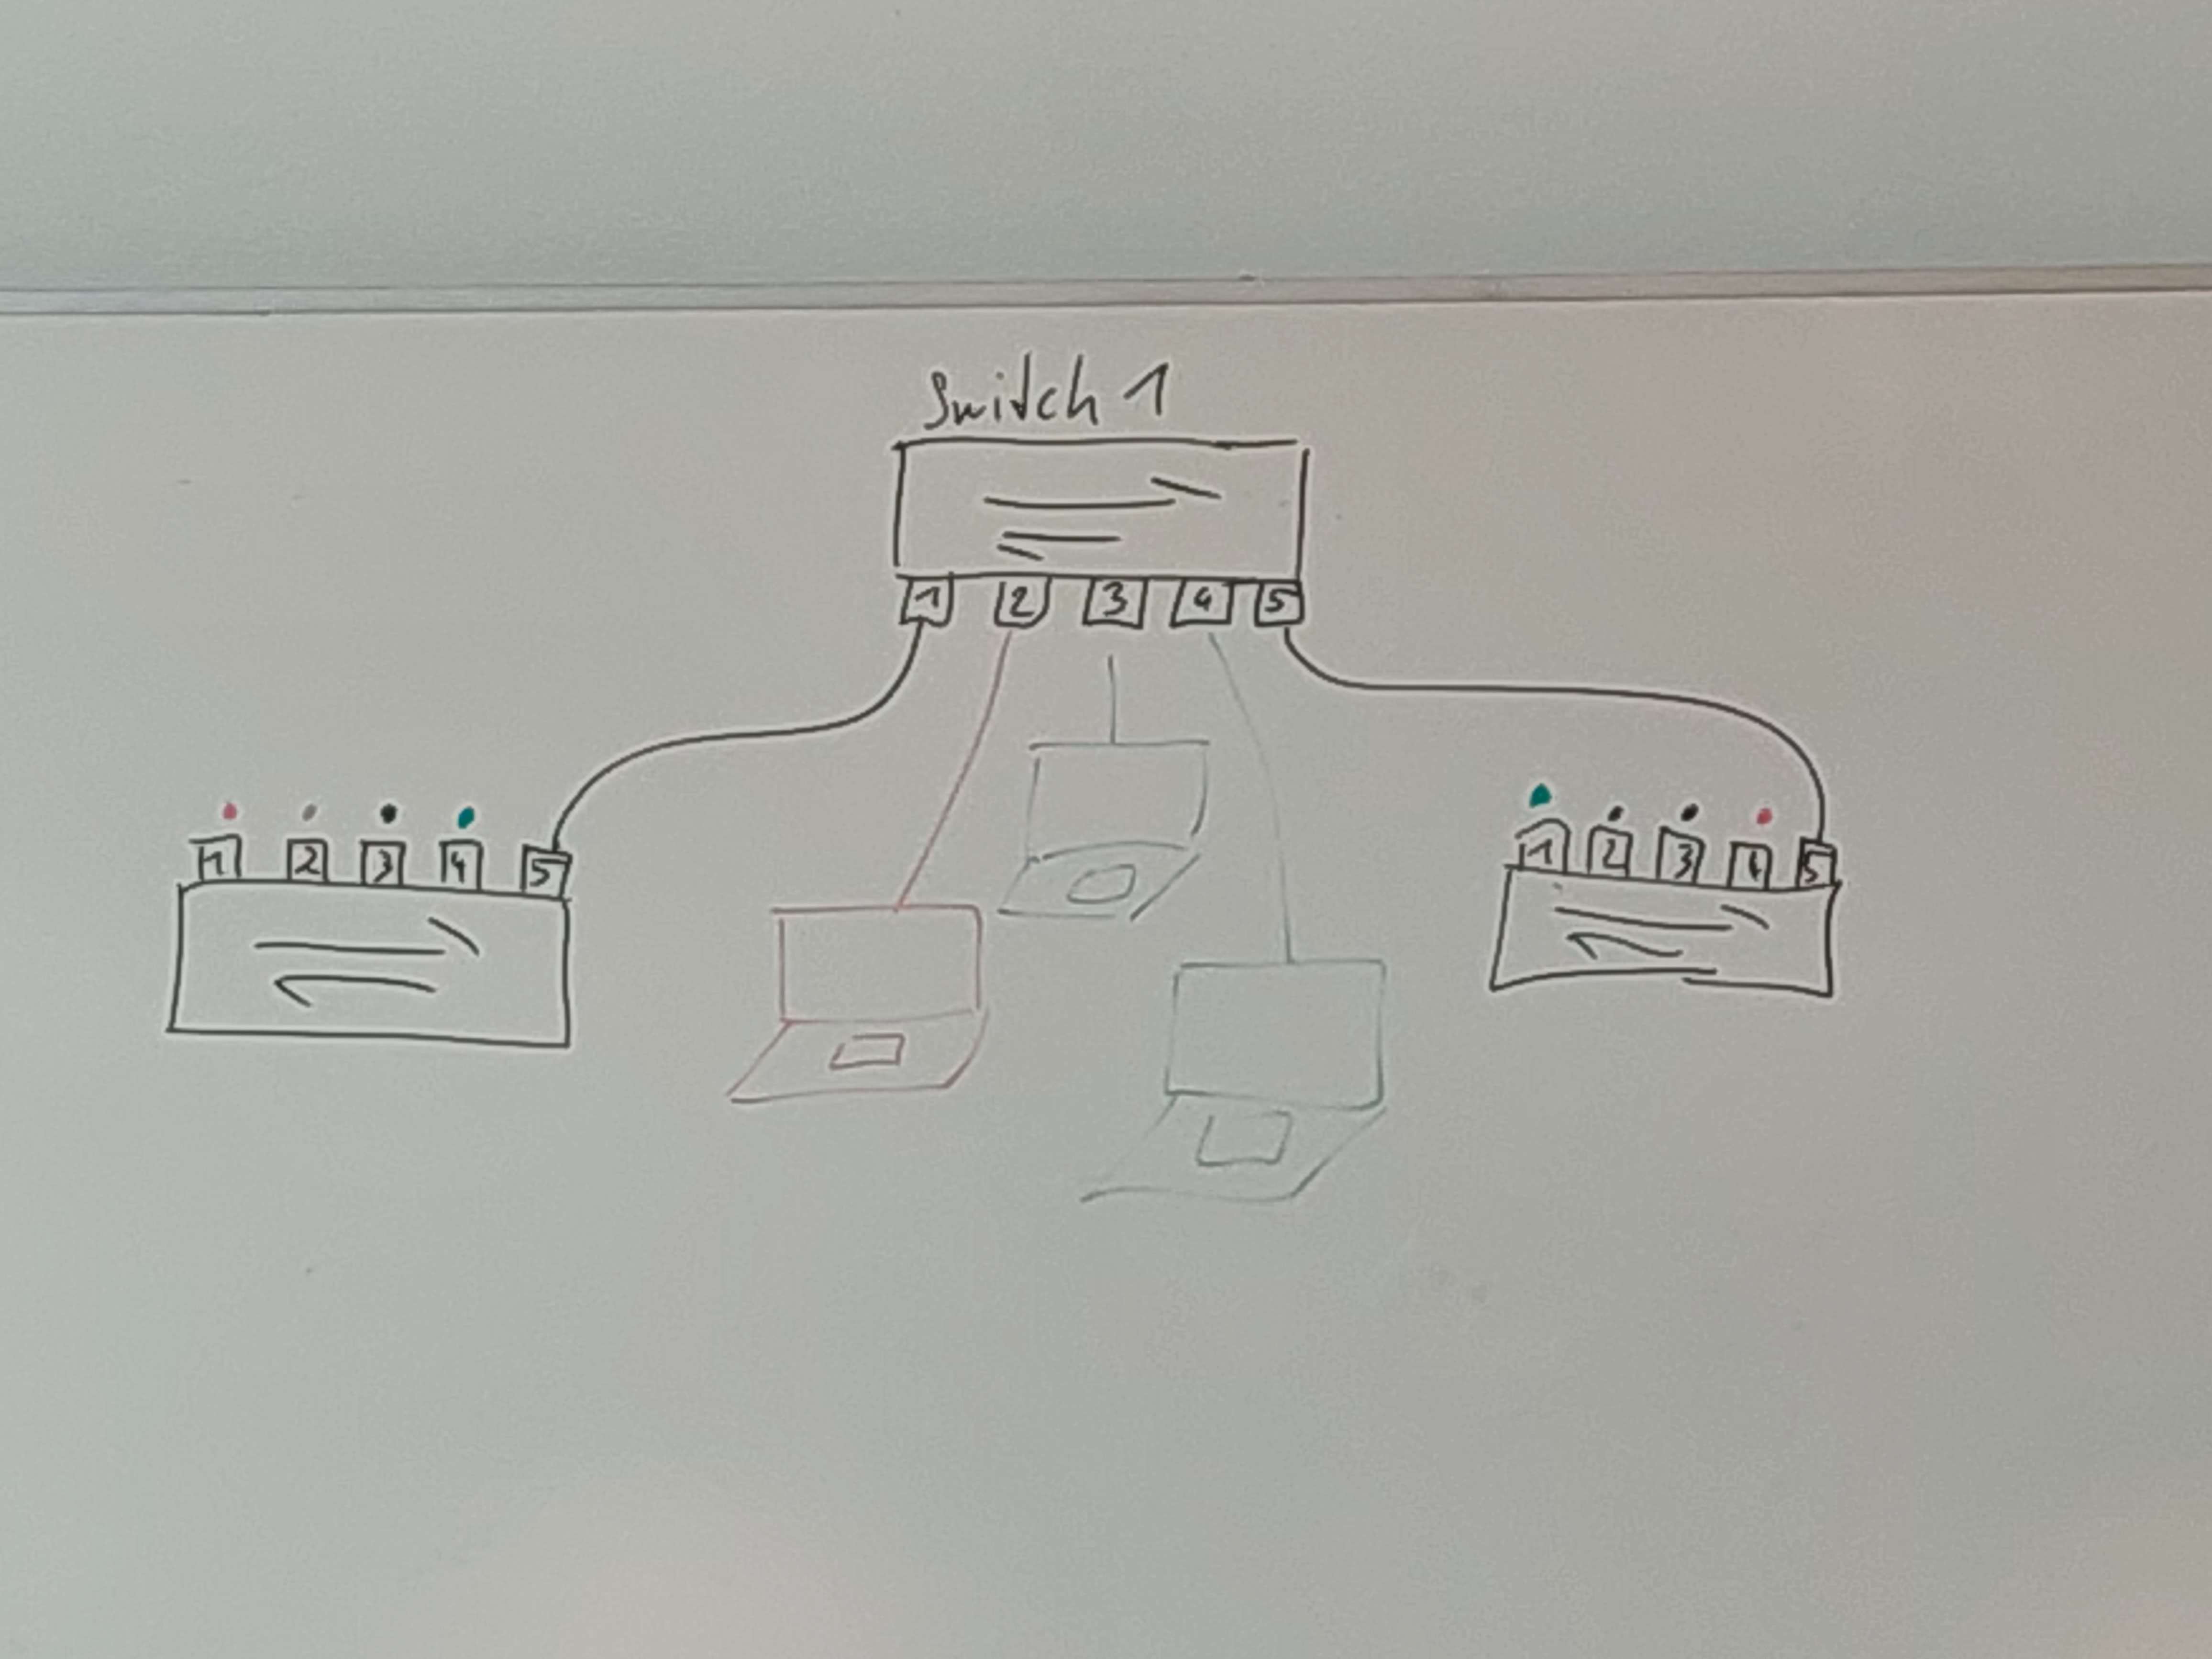 Switch 1
1 2 3 4 5
1 2 3 4 5
1 2 3 4 5